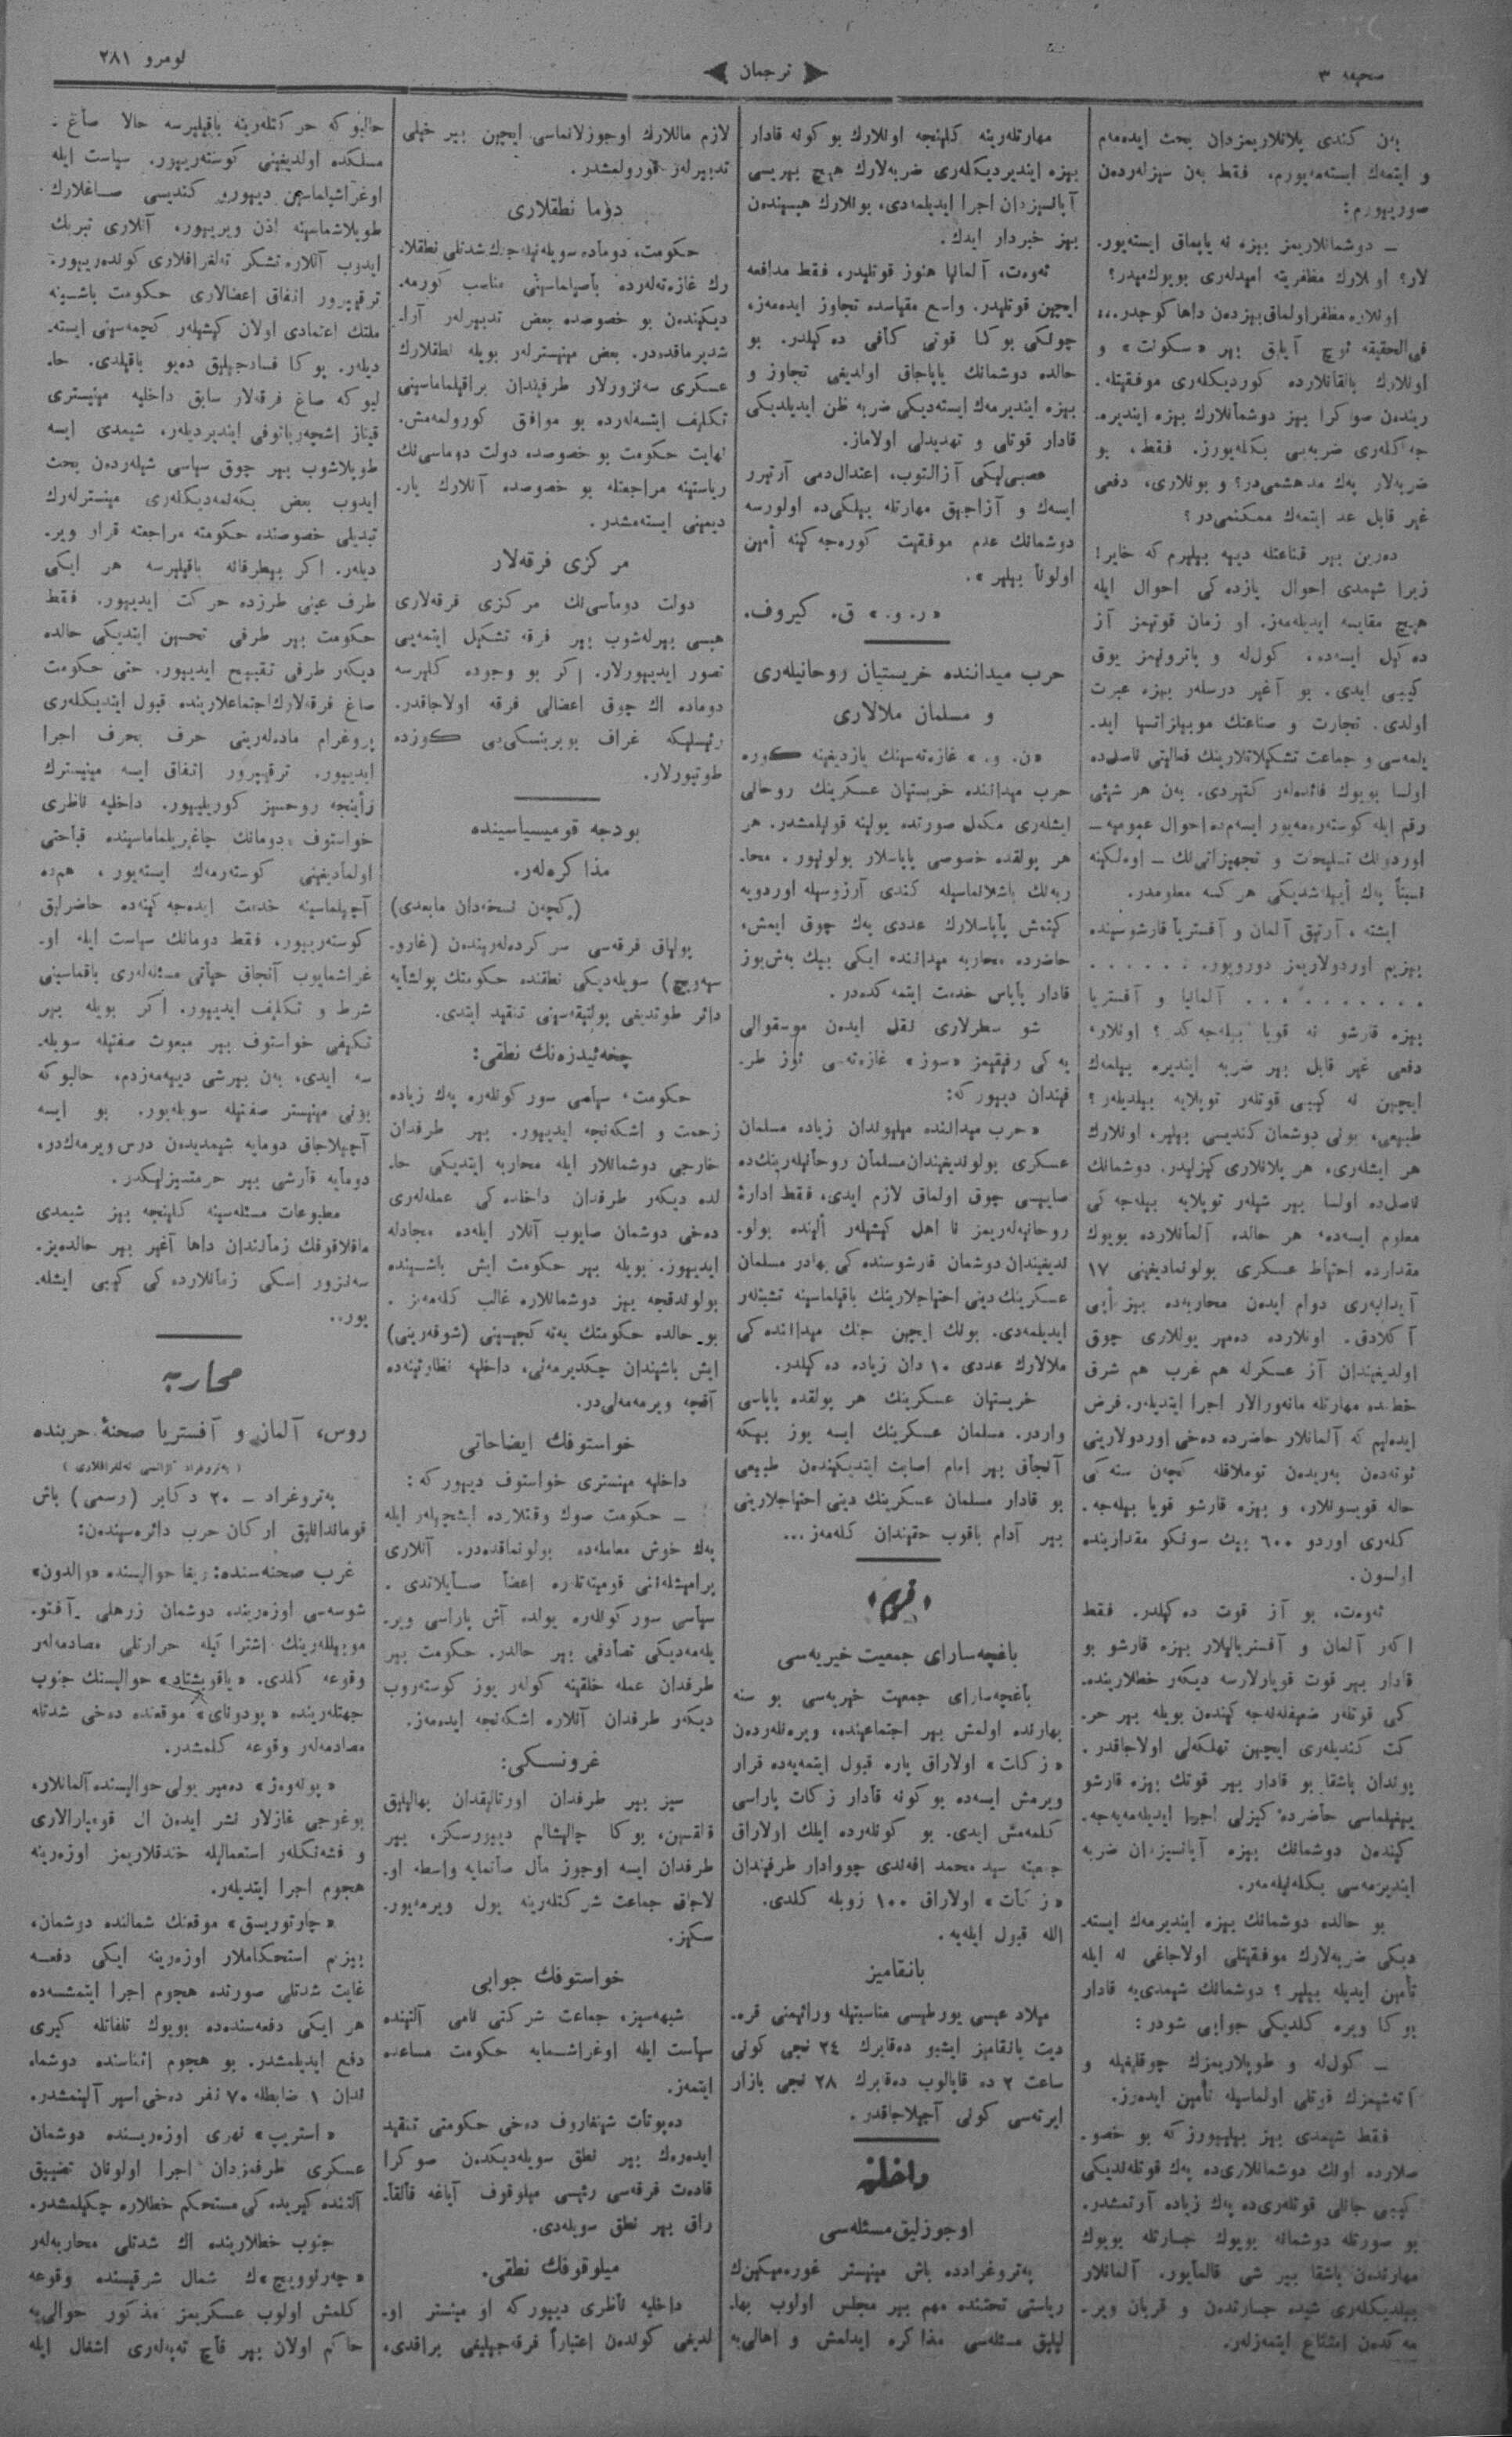 صحیفه ۳
ترجمان
نومرو ۲۸۱
بەن كندی پلانلاریمزدان بحث ایدەمەم
و ایتمەك ایستەمەیورم، فقط بەن سیزلەردەن
صوریورم:
ـ دوشمانلاریمز بیزە نە یاپماق ایستەیور-
لار؟ اونلارك مظفریتە امیدلەری بویوك‌میدر؟
اونلارە مظفر اولماق بیزدەن داها كوجدر...
فی‌الحقیقە ئوچ آیلق بیر «سكونت» و
اونلارك بالقانلاردە كوردیكلەری موفقیتلە-
ریندەن صوكرا بیز دوشمانلارك بیزە ایندیرە-
جەكلەری ضربەیی بكلەیورز. فقط، بو
ضربەلار پەك مدهشمی‌در؟ و بونلاری، دفعی
غیر قابل عد ایتمەك ممكنمی‌در؟
دەرین بیر قناعتلە دییە بیلیرم كە خایر!
زیرا شیمدی احوال یازدەكی احوال ایلە
هیچ مقایسە ایدیلەمەز. او زمان قوتیمز آز
دەكیل ایسەدە، كوللە و پاترونیمز یوق
كیبی ایدی. بو آغیر درسلەر بیزە عبرت
اولدی. تجارت و صناعتك موبیلیزاتسیا اید-
یلمەسی و جماعت تشكیلاتلارینك فعالیتی ناصل‌دە
اولسا بویوك فائدەلەر كتیردی. بەن هر شیئی
رقم ایلە كوستەرەمەیور ایسەم‌دە احوال عمومیە ـ
اوردونك تسلیحات و تجهیزاتی‌نك ـ اوەلكینە
نسبتاً پەك أییلەشدیكی هر كسە معلومدر.
ایشتە، آرتیق آلمان و آفستریا قارشوسیندە
بیزیم اوردولاریمز دورویور. . . . . . .
. . . . . . . . . . آلمانیا و آفستریا
بیزە قارشو نە قویا بیلەجەكد؟ اونلار،
دفعی غیر قابل بیر ضربە ایندیرە بیلمەك
ایچین نە كیبی قوتلەر توپلایە بیلدیلەر؟
طبیعی، بونی دوشمان كندیسی بیلیر، اونلارك
هر ایشلەری، هر پلانلاری كیزلیدر. دوشمانك
ناصل‌دە اولسا بیر شیلەر توپلایە بیلەجەكی
معلوم ایسەدە، هر حالدە آلمانلاردە بویوك
مقداردە احتیاط عسكری بولونمادیغینی ۱۷
آیدانبەری دوام ایدەن محاربەدە بیز أیی
آكلادق. اونلاردە دەمیر یوللاری چوق
اولدیغیندان آز عسكرلە هم غرب هم شرق
خطندە مهارتلە مانەورالار اجرا ایتدیلەر. فرض
ایدەلیم كە آلمانلار حاضردە دەخی اوردولارینی
ئوتەدەن بەریدەن توملاقلە كچەن سنەكی
حالە قویسونلار، و بیزە قارشو قویا بیلەجە-
كلەری اوردو ۶۰۰ بیك سونكو مقداریندە
اولسون.
ئەوەت، بو آز قوت دەكیلدر. فقط
اكەر آلمان و آفستریالیلار بیزە قارشو بو
قادار بیر قوت قویارلارسە دیكەر خطلاریندە-
كی قوتلەر ضعیفلەنەجەكیندەن بویلە بیر حر-
كت كندیلەری ایچین تهلكەلی اولاجاقدر.
بوندان باشقا بو قادار بیر قوتك بیزە قارشو
یغیلماسی حاضردە كیزلی اجرا ایدیلەمەیەجە-
كیندەن دوشمانك بیزە آپانسیزدان ضربە
ایندیرمەسی بكلەنیلەمەز.
بو حالدە دوشمانك بیزە ایندیرمەك ایستە-
دیكی ضربەلارك موفقیتلی اولاجاغی نە ایلە
تأمین ایدیلە بیلیر؟ دوشمانك شیمدی‌یە قادار
بوكا ویرە كلدیكی جوابی شودر:
ـ كوللە و طوپلاریمزك چوقلیغیلە و
آتەشیمزك قوتلی اولماسیلە تأمین ایدەرز.
فقط شیمدی بیز بیلیورز كە بو خصو-
صلاردە اونك دوشمانلاری‌دە پەك قوتلەندیكی
كیبی جانلی قوتلەری‌دە پەك زیادە آرتمشدر.
بو صورتلە دوشمانە بویوك جسارتلە بویوك
مهارتدەن باشقا بیر شی قالمایور. آلمانلار
بیلدیكلەری شیدە جسارتدەن و قربان ویر-
مەكدەن امتناع ایتمەزلەر.
مهارتلەرینە كلینجە اونلارك بو كونە قادار
بیزە ایندیردیكلەری ضربەلارك هیچ بیریسی
آپانسیزدان اجرا ایدیلمەدی، بونلارك هپسیندەن
بیز خبردار ایدك.
ئەوەت، آلمانیا هنوز قوتلیدر، فقط مدافعە
ایچین قوتلیدر. واسع مقیاسدە تجاوز ایدەمەز،
چونكی بوكا قوتی كافی دەكیلدر. بو
حالدە دوشمانك یاپاجاق اولدیغی تجاوز و
بیزە ایندیرمەك ایستەدیكی ضربە ظن ایدیلدیكی
قادار قوتلی و تهدیدلی اولاماز.
عصبی‌لیكی آزالتوب، اعتدال‌دمی آرتیرر
ایسەك و آزاجیق مهارتلە بیلكی‌دە اولورسە
دوشمانك عدم موفقیت كورەجەكینە أمین
اولونا بیلیر».
«ر. و.» ق. كیروف.
حرب میداننده خریستیان روحانیلەری
و مسلمان ملالاری
«ن. و.» غازەتەسینك یازدیغینە كورە
حرب میدانندە خریستیان عسكرینك روحانی
ایشلەری مكمل صورتدە یولینە قویلمشدر. هر
هر پولقدە خصوصی پاپاسلار بولونیور. محا-
ربەنك باشلانماسیلە كندی آرزوسیلە اوردویە
كیتمش پاپاسلارك عددی پەك چوق ایمش،
حاضردە محاربە میدانندە ایكی بیك بەش‌یوز
قادار پاپاس خدمت ایتمەكدەدر.
شو سطرلاری نقل ایدەن موسقوالی
یەكی رفیقیمز «سوز» غازەتەسی ئوز طر-
فیندان دییور كە:
«حرب میدانندە میلیوندان زیادە مسلمان
عسكری بولوندیغیندان مسلمان روحانیلەرینك‌دە
صاییسی چوق اولماق لازم ایدی، فقط ادارۀ
روحانیەلەریمز نا اهل كیشیلەر ألیندە بولو-
ندیغیندان دوشمان قارشوسندەكی بهادر مسلمان
عسكرینك دینی احتیاجلارینك باقیلماسینە تشبثلەر
ایدیلمەدی. بونك ایچین جنك میدانندەكی
ملالارك عددی ۱۰ دان زیادە دەكیلدر.
خریستیان عسكرینك هر پولقدە پاپاسی
واردر. مسلمان عسكرینك ایسە یوز بیكە
آنجاق بیر امام اصابت ایتدیكیندەن طبیعی
بو قادار مسلمان عسكرینك دینی احتیاجلارینی
بیر آدام باقوب حقیندان كلەمەز...
قریم
باغچەسارای جمعیت خیریەسی
باغچەسارای جمعیت خیریەسی بو سنە
بهارندە اولمش بیر اجتماعیندە، ویرەنلەردەن
«زكات» اولاراق پارە قبول ایتمەیەدە قرار
ویرمش ایسەدە بو كونە قادار زكات پاراسی
كلمەمش ایدی. بو كونلەردە ایلك اولاراق
جمعیتە سید محمد افەندی چووادار طرفیندان
«زكات» اولاراق ۱۰۰ روبلە كلدی.
اللە قبول ایلەیە.
بانقامیز
میلاد عیسی یورطیسی مناسبتیلە ورائیمنی قرە-
دیت بانقامیز ایشبو دەقابرك ۲٤ نجی كونی
ساعت ۲ دە قاپالوب دەقابرك ۲۸ نجی پازار
ایرتەسی كونی آچیلاجاقدر.
داخلیه
اوجوزلیق مسئلەسی
پەتروغراددە باش مینیستر غورەمیكین‌ك
ریاستی تحتندە مهم بیر مجلس اولوب بها-
لیلیق مسئلەسی مذاكرە ایدلمش و اهالی‌یە
لازم ماللارك اوجوزلانماسی ایچین بیر خیلی
تدبیرلەر قورولمشدر.
دوما نطقلاری
حكومت، دومادە سویلەنیلەجەك شدتلی نطقلا-
رك غازەتەلەردە باصیلماسینی مناسب كورمە-
دیكیندەن بو خصوصدە بعض تدبیرلەر آرا-
شدیرماقدەدر. بعض مینیسترلەر بویلە نطقلارك
عسكری سەنزورلار طرفیندان براقیلماماسینی
تكلیف ایتسەلەردە بو موافق كورولمەمش.
نهایت حكومت بو خصوصدە دولت دوماسی‌نك
ریاستینە مراجعتلە بو خصوصدە آنلارك یار-
دیمینی ایستەمشدر.
مركزی فرقەلار
دولت دوماسی‌نك مركزی فرقەلاری
هپسی بیرلەشوب بیر فرقە تشكیل ایتمەیی
تصور ایدییورلار. اكر بو وجودە كلیرسە
دومادە اك چوق اعضالی فرقە اولاجاقدر.
رئیسلیكە غراف بوبرینسكی‌یی كوزدە
طوتیورلار.
بودجە قومیسیاسیندە
مذاكرەلەر.
(كچەن نسخەدان مابعدی)
پولیاق فرقەسی سركردەلەریندەن (غارو-
سیەویچ) سویلەدیكی نطقندە حكومتك پولشایە
دائر طوتدیغی پولتیقەسینی تنقید ایتدی.
چخەئیدزەنك نطقی:
حكومت، سیاسی سوركونلەرە پەك زیادە
زحمت و اشكەنجە ایدییور. بیر طرفدان
خارجی دوشمانلار ایلە محاربە ایتدیكی حا-
لدە دیكەر طرفدان داخلدەكی عملەلەری
دەخی دوشمان صایوب آنلار ایلەدە مجادلە
ایدییور. بویلە بیر حكومت ایش باشیندە
بولوندقچە بیز دوشمانلارە غالب كلەمەز.
بو حالدە حكومتك یەتەكچیسینی (شوفەرینی)
ایش باشیندان چكدیرمەلی، داخلیە نظارتینەدە
آقچە ویرمەمەلی‌در.
خواستوفك ایضاحاتی
داخلیە مینیستری خواستوف دییور كە:
ـ حكومت صوك وقتلاردە ایشچیلەر ایلە
پەك خوش معاملەدە بولونماقدەدر. آنلاری
پرامیشلەننی قومیتەتلارە اعضا صایلاتدی.
سیاسی سوركونلەرە یولدە آش پاراسی ویر-
یلمەدیكی تصادفی بیر حالدر. حكومت بیر
طرفدان عملە خلقینە كولەر یوز كوستەروب
دیكەر طرفدان آنلارە اشكەنجە ایدەمەز.
غرونسكی:
سیز بیر طرفدان اورتالیقدان بهالیلیق
قالقسین، بوكا چالیشالم دییورسكز، بیر
طرفدان ایسە اوجوز مال صاتمایە واسطە او-
لاجاق جماعت شركتلەرینە یول ویرمەیور-
سكیز.
خواستوفك جوابی
شبهەسیز، جماعت شركتی نامی آلتیندە
سیاست ایلە اوغراشمایە حكومت مساعدە
ایتمەز.
دەپوتات شینغاروف دەخی حكومتی تنقید
ایدەرەك بیر نطق سویلەدیكدەن صوكرا
قادەت فرقەسی رئیسی میلوقوف آیاغە قالقا-
راق بیر نطق سویلەدی.
میلوقوفك نطقی.
داخلیە ناظری دییور كە او مینستر او-
لدیغی كوندەن اعتباراً فرقەجیلیغی براقدی،
حالبوكە حركتلەرینە باقیلیرسە حالا صاغ
مسلكدە اولدیغینی كوستەرییور. سیاست ایلە
اوغراشیلماسین دییور، كندیسی صاغلارك
طوپلاشماسینە اذن ویرییور، آنلاری تبریك
ایدوب آنلارە تشكر تەلغرافلاری كوندەرییور.
ترقیپرور اتفاق اعضالاری حكومت باشینە
ملتك اعتمادی اولان كیشیلەر كچمەسینی ایستە-
دیلەر. بوكا فسادجیلیق دەیو باقیلدی. حا-
لبوكە صاغ فرقەلار سابق داخلیە مینیستری
قیناز اشچەرباتوفی ایندیردیلەر، شیمدی ایسە
طوپلاشوب بیر چوق سیاسی شیلەردەن بحث
ایدوب بعض بكەنمەدیكلەری مینسترلەرك
تبدیلی خصوصندە حكومتە مراجعتە قرار ویر-
دیلەر. اكر بیطرفانە باقیلیرسە هر ایكی
طرف عینی طرزدە حركت ایدییور. فقط
حكومت بیر طرفی تحسین ایتدیكی حالدە
دیكەر طرفی تقبیح ایدییور. حتی حكومت
صاغ فرقەلارك اجتماعلاریندە قبول ایتدیكلەری
پروغرام مادەلەرینی حرف بحرف اجرا
ایدییور. ترقیپرور اتفاق ایسە مینیسترك
رأینجە روحسیز كورینییور. داخلیە ناظری
خواستوف، دومانك چاغریلماماسیندە قباحتی
اولمادیغینی كوستەرمەك ایستەیور، هم‌دە
آچیلماسینە خدمت ایدەجەكینەدە حاضرلیق
كوستەرییور. فقط دومانك سیاست ایلە او-
غراشمایوب آنجاق حیاتی مسئلەلەری باقماسینی
شرط و تكلیف ایدییور. اكر بویلە بیر
تكلیفی خواستوف بیر مبعوث صفتیلە سویلە-
سە ایدی، بەن بیرشی دییەمەزدم، حالبوكە
بونی مینیستر صفتیلە سویلەیور. بو ایسە
آچیلاجاق دومایە شیمدیدەن درس ویرمەك‌در،
دومایە قارشی بیر حرمتسیزلیكدر.
مطبوعات مسئلەسینە كلینجە بیز شیمدی
ماقلاقوفك زماننداندان داها آغیر بیر حالدەیز.
سەنزور اسكی زمانلاردەكی كیبی ایشلە-
یور..
محاربە
روس، آلمان و آفستریا صحنۀ حربندە
(پەتروغراد آژانسی تەلغرافلاری)
پەتروغراد ـ ۲۰ دكابر (رسمی) باش
قوماندانلیق اركان حرب دائرەسیندەن:
غرب صحنەسندە: ریغا حوالیسندە «والدون»
شوسەسی اوزەریندە دوشمان زرهلی آفتو-
موبیللەرینك اشتراكیلە حرارتلی مصادمەلەر
وقوعە كلدی. «یاقوبشتاد» حوالیسنك جنوب
جهتلەریندە «پودونای» موقعندە دەخی شدتلە
مصادمەلەر وقوعە كلمشدر.
«پونەوەژ» دەمیر یولی حوالیسندە آلمانلار،
بوغوجی غازلار نشر ایدەن ال قومبارالاری
و فشەنكلەر استعمالیلە خندقلاریمز اوزەرینە
هجوم اجرا ایتدیلەر.
«چارتوریسق» موقعنك شمالندە دوشمان،
بیزیم استحكاملار اوزەرینە ایكی دفعە
غایت شدتلی صورتدە هجوم اجرا ایتمشسەدە
هر ایكی دفعەسندەدە بویوك تلفاتلە كیری
دفع ایدیلمشدر. بو هجوم اثناسندە دوشما-
ندان ۱ ضابطلە ۷۰ نفر دەخی اسیر آلینمشدر.
«استریپ» نهری اوزەریندە دوشمان
عسكری طرفمزدان اجرا اولونان تضییق
آلتندە كیریدەكی مستحكم خطلارە چكیلمشدر.
جنوب خطلاریندە اك شدتلی محاربەلەر
«چەرنوویچ»ك شمال شرقیسندە وقوعە
كلمش اولوب عسكریمز مذكور حوالی‌یە
حاكم اولان بیر قاچ تەپەلەری اشغال ایلە